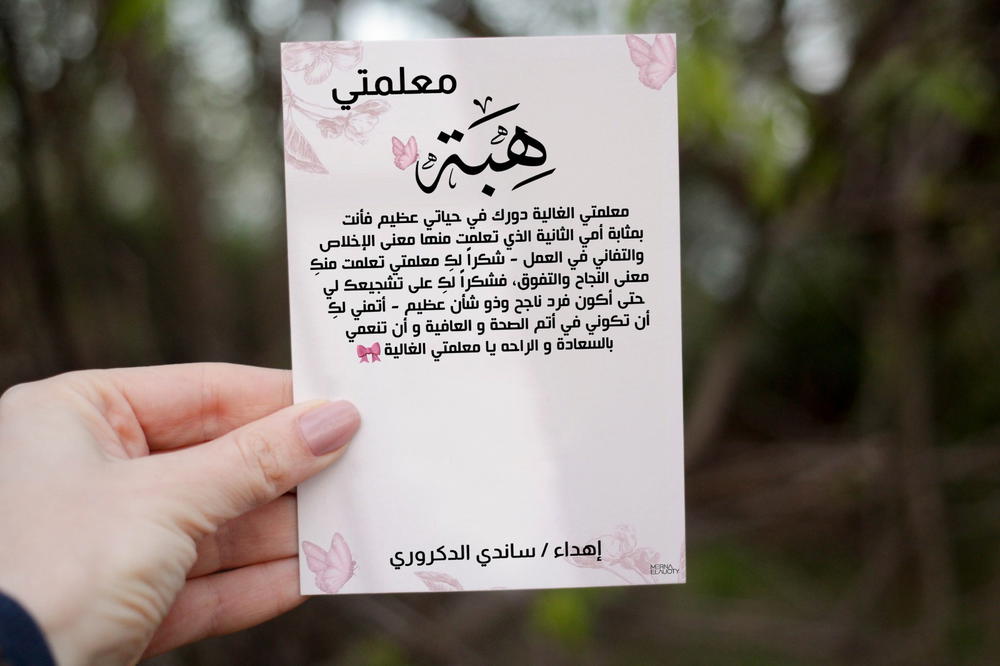 معلمتي
هِبَة
معلمتي الغالية دورك في حياتي عظيم فأنت
بمثابة أمي الثانية الذي تعلمت منها معنى الإخلاص
والتفاني في العمل - شكراً لكِ معلمتي تعلمت منكِ
معنى النجاح والتفوق، فشكراً لكِ على تشجيعك لي
حتى أكون فرد ناجح وذو شأن عظيم - أتمني لكِ
أن تكوني في أتم الصحة و العافية و أن تنعمي
بالسعادة و الراحه يا معلمتي الغالية
إهداء / ساندي الدكروري
MERNA